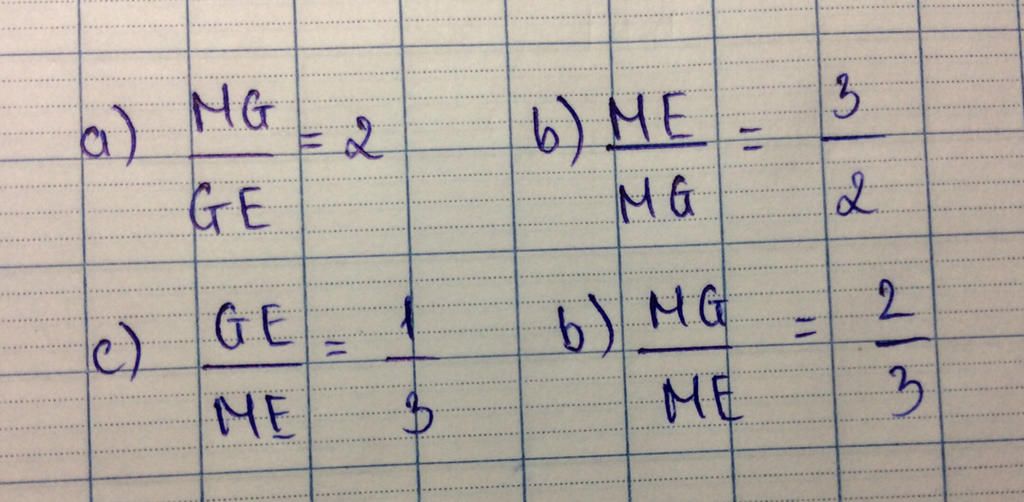 a) MG/GE = 2 b) ME/MG = 3/2
c) GE/ME = 1/3 b) MG/ME = 2/3